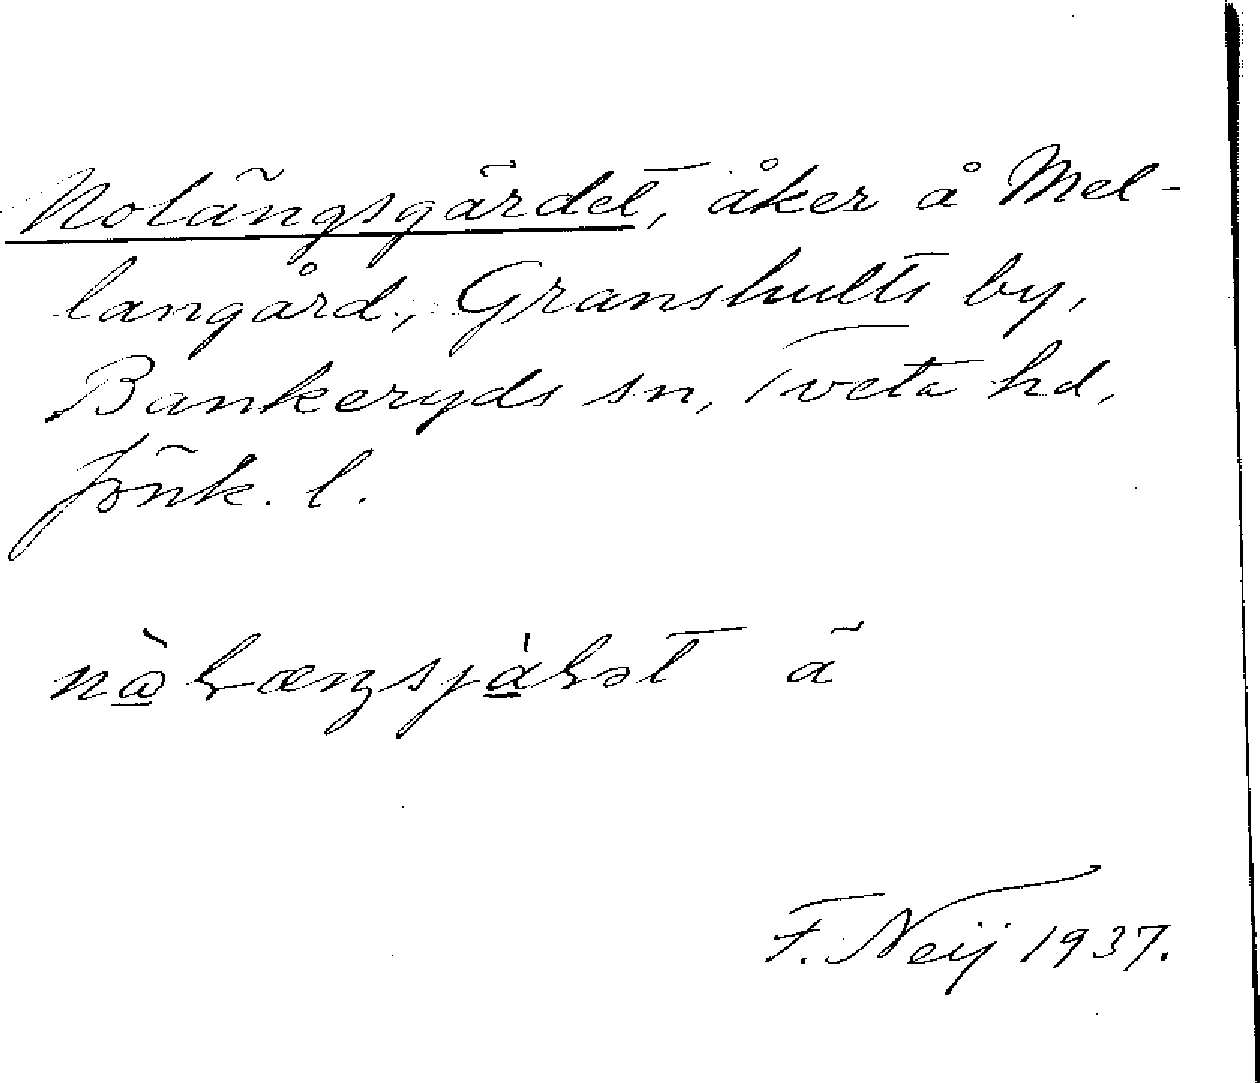 Nolängsgärdet, åker å Mel-
langård, Granshults by,
Bankeryds sn, Tveta hd,
Jönk. l.
ä
F. Neij 1937.